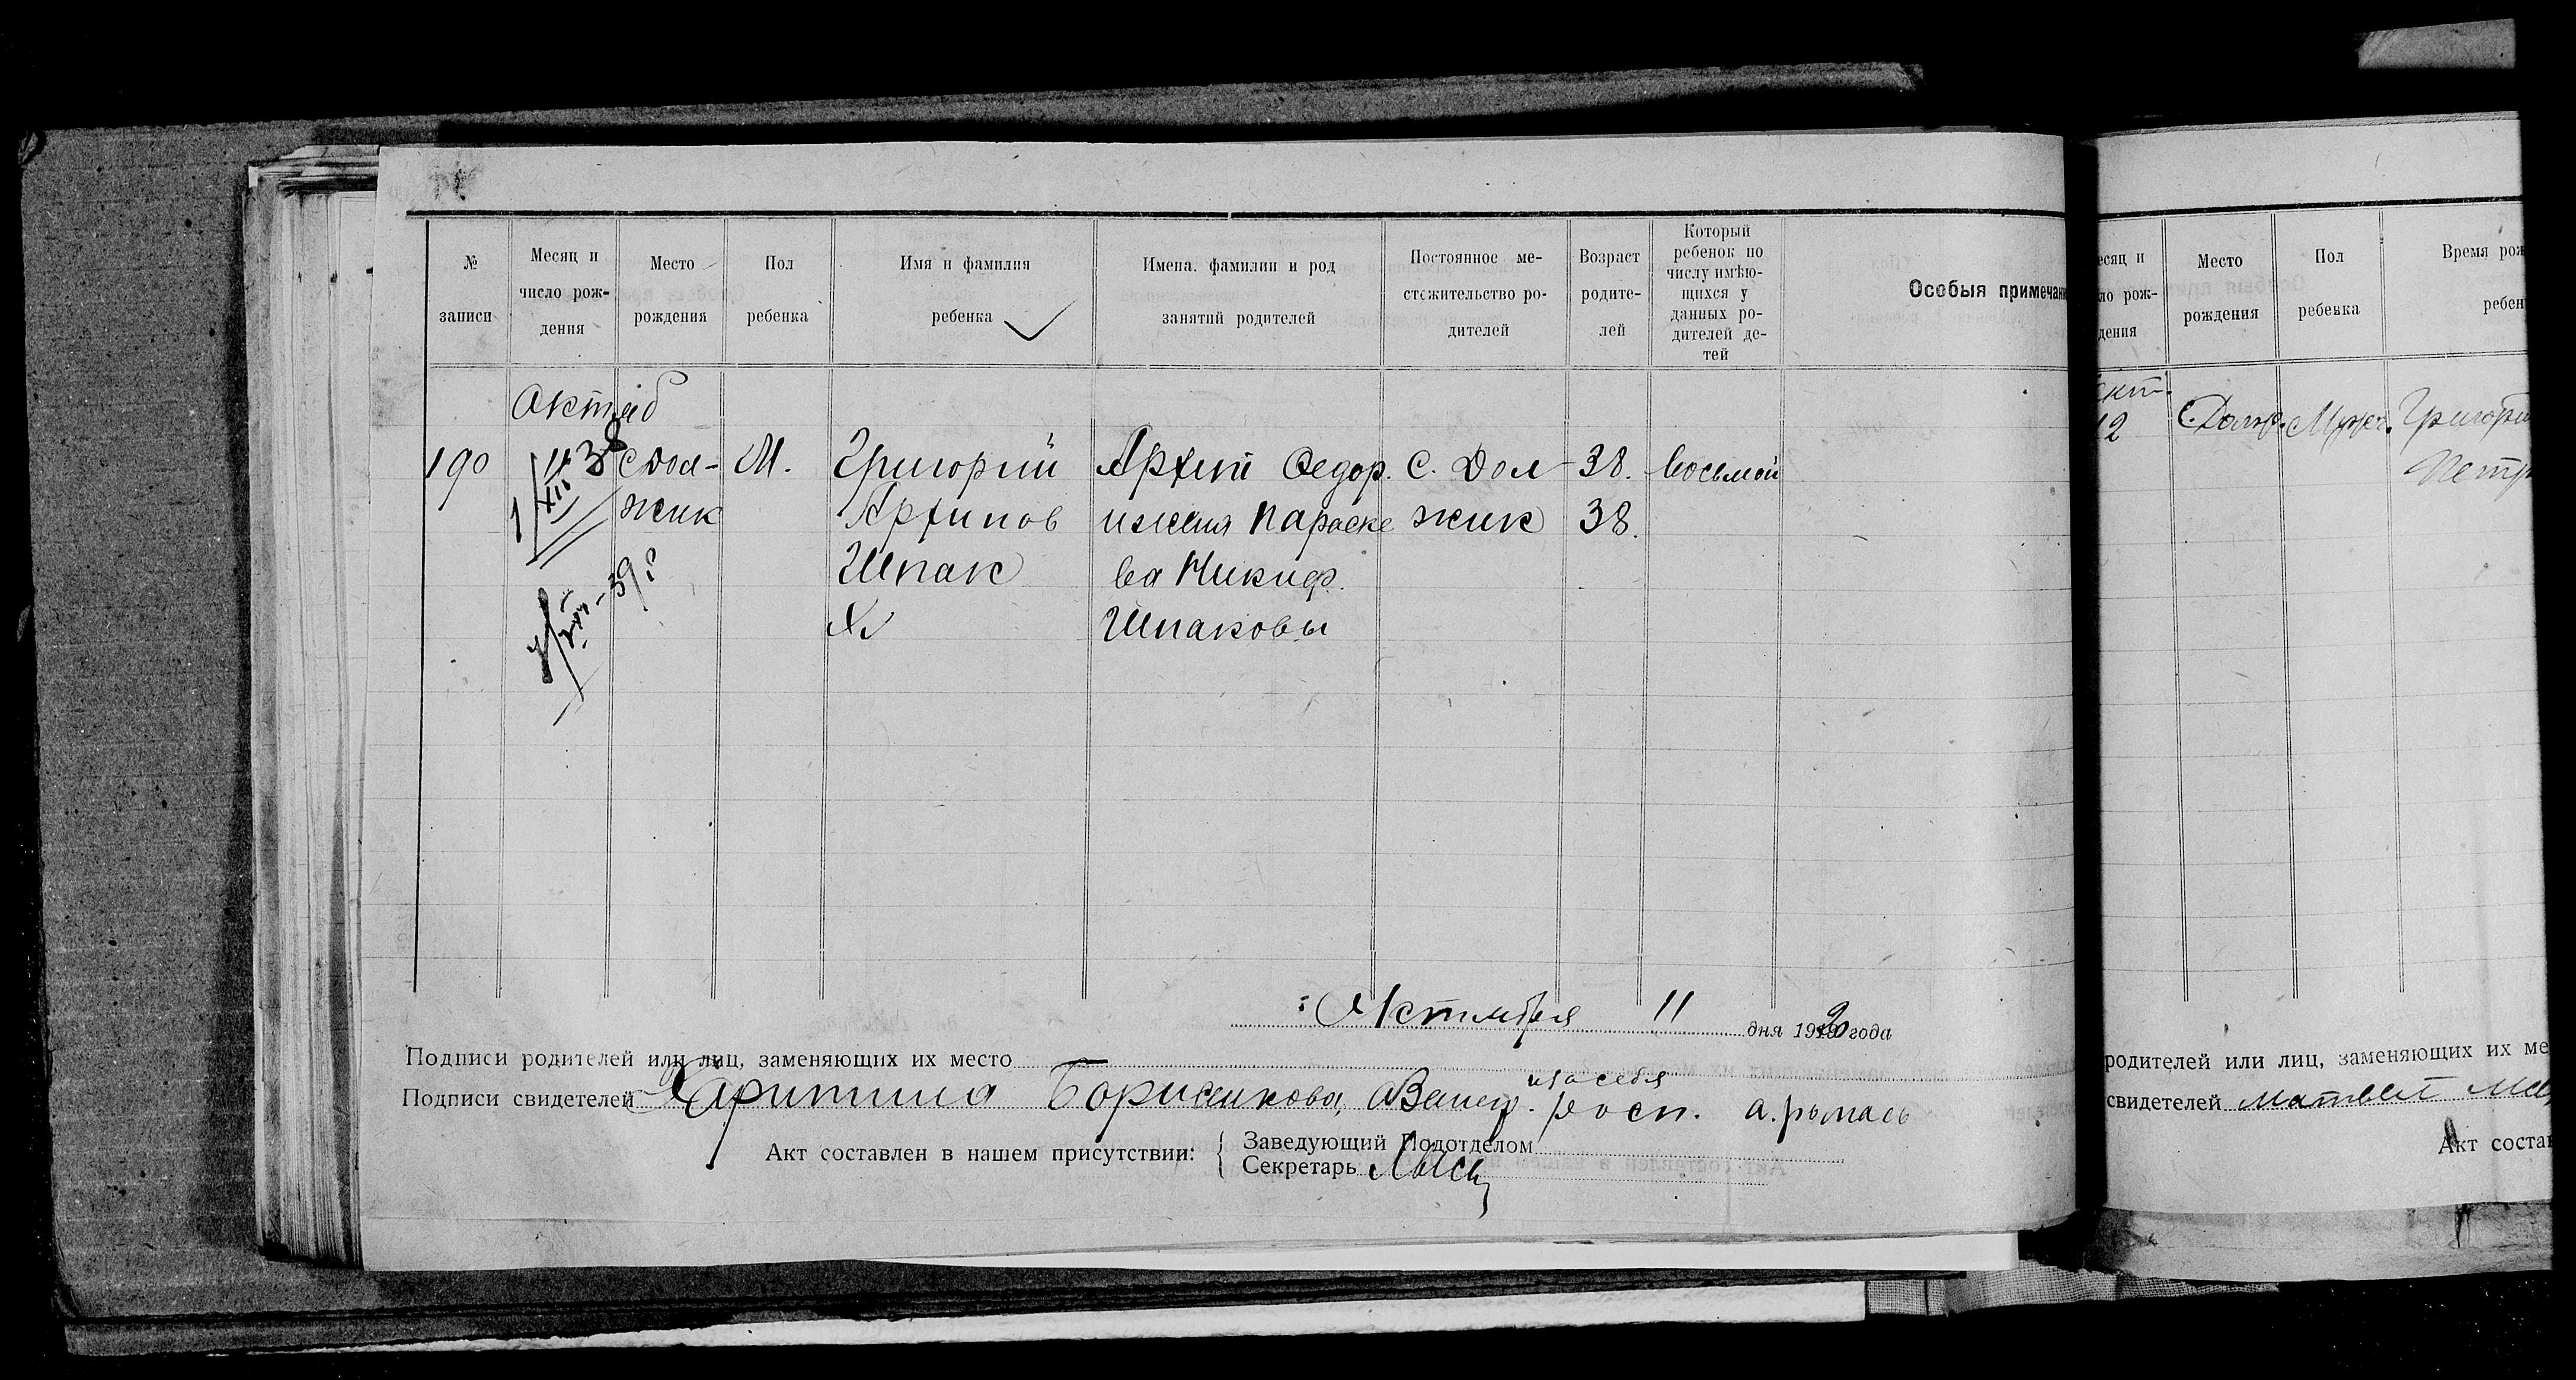 № записи
Месяц и число рож- дения
Место рождения
Пол ребенка
Имя и фамилия ребенка
Имена, фамилии и род занятий родителей
Постоянное ме- стожительство ро- дителей
Возраст родите- лей
Который ребенок по числу имѣю- щихся у данных ро- дителей де- тей
Особыя примечан
190
с Дол- жик
М.
Григорий
Архипов
Шпак
Архип Федор.
и жена Параске
ва Никиф.
Шпаковы
с. Дол
жик
38.
38.
восьмой
Октября 11 дня 1920 года
Подписи родителей или лиц, заменяющих их место
Подписи свидетелей Харитина Борисенкова,
за себя
росп.
Акт составлен в нашем присутствии:
Заведующий Подотделом
Секретарь
есяц и
ло рож-
дения
Место рождения
Пол ребенка
Время рож
ребен
кт.
12
Григори
Петр
родителей или лиц, заменяющих их ме
свидетелей Матвей
Акт состав